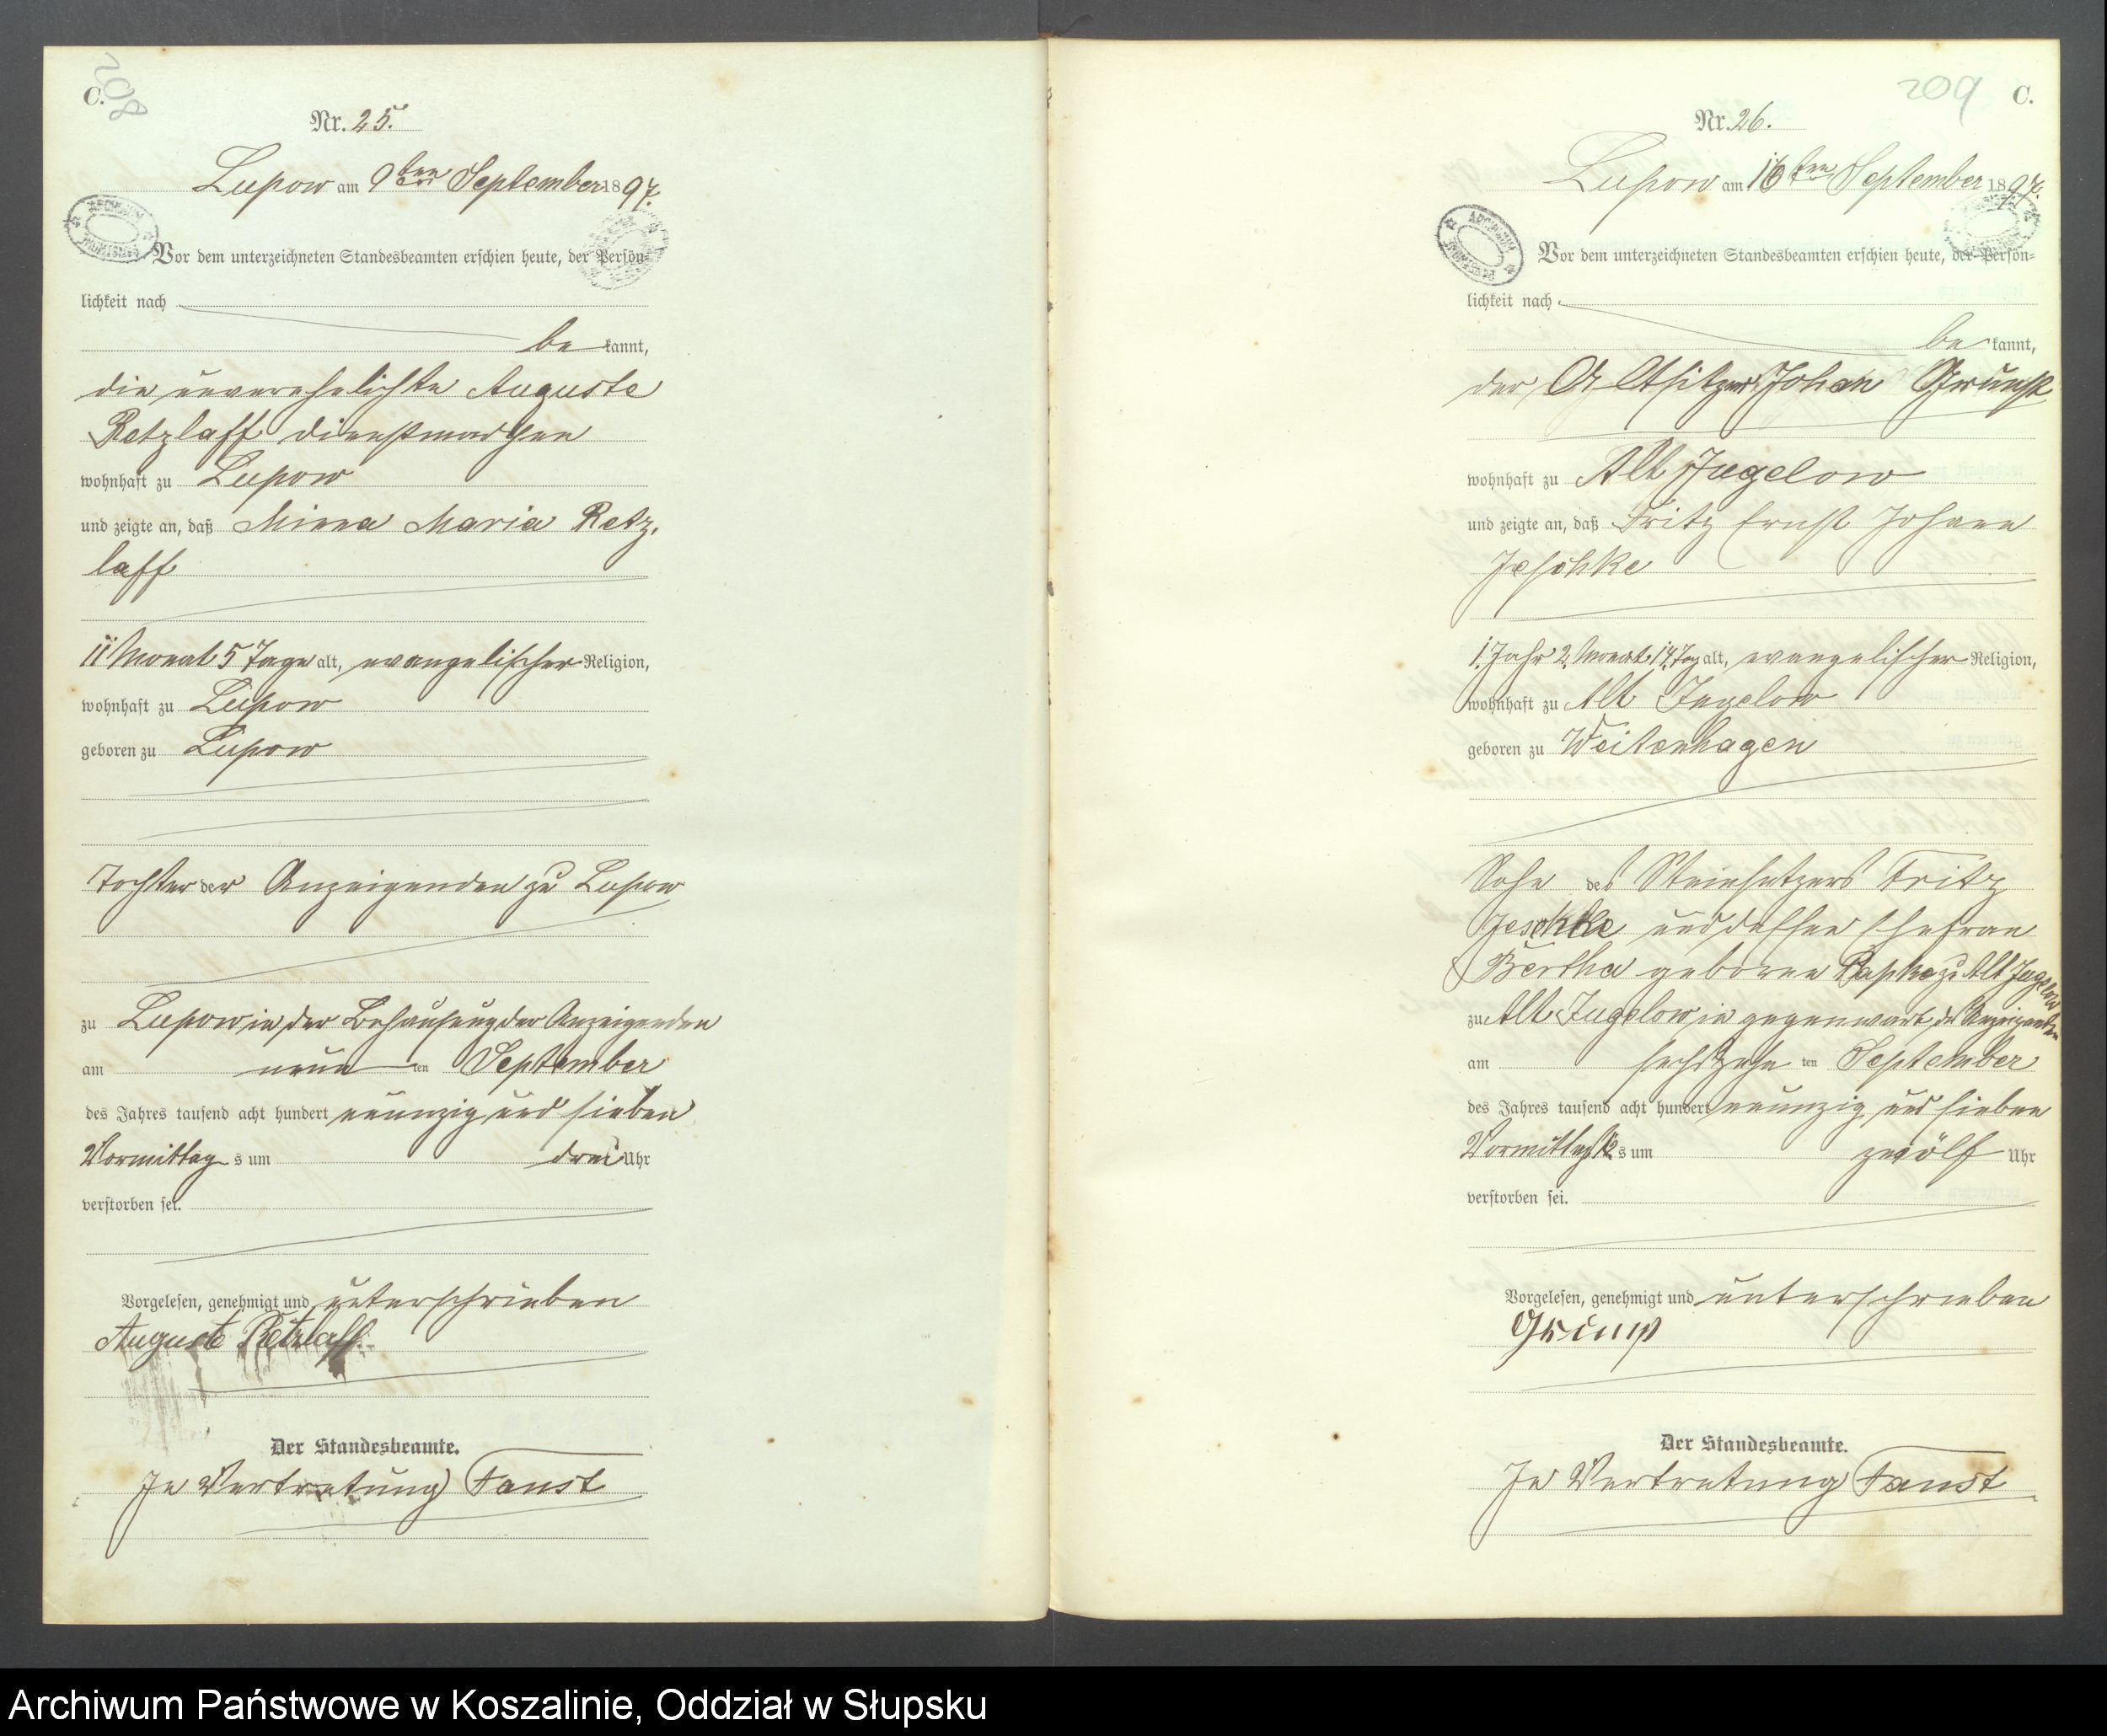 208
C.
Nr. 25.
Lupow am 9ten September 1897.
Vor dem unterzeichneten Standesbeamten erschien heute, der Persön-
lichkeit nach
be kannt,
die unverehelichte Auguste
Retzlaff Dienstmädchen
wohnhaft zu Lupow
und zeigte an, daß Minna Maria Retz-
laff
11 Monat 5 Tage alt, evangelischer Religion,
wohnhaft zu Lupow
geboren zu Lupow
Tochter der Anzeigenden zu Lupow
zu Lupow in der Behausung der Anzeigenden
am neun ten September
des Jahres tausend acht hundert neunzig und sieben
Vormittag s um drei Uhr
verstorben sei.
Vorgelesen, genehmigt und unterschrieben
Auguste Retzlaff
Der Standesbeamte.
In Vertretung Faust
209
C.
Nr. 26.
Lupow am 16ten September 1897.
Vor dem unterzeichneten Standesbeamten erschien heute, der Persön-
lichkeit nach
be kannt,
der Altsitzer Johan
wohnhaft zu Alt Jugelow
und zeigte an, daß Fritz Ernst Johann
Jeschke
1 Jahr 2 Monat 14 Tag alt, evangelischer Religion,
wohnhaft zu Alt Jugelow
geboren zu Weitenhagen
Sohn des Steinsetzers Fritz
Jeschke und dessen Ehefrau
Bertha geborene Papke zu Alt Jugelow
zu Alt Jugelow in gegenwart des Anzeigenden
am sechszehn ten September
des Jahres tausend acht hundert neunzig und sieben
Vormittag 12 s um zwölf Uhr
verstorben sei.
Vorgelesen, genehmigt und unterschrieben
Der Standesbeamte.
In Vertretung Faust
Archiwum Państwowe w Koszalinie, Oddział w Słupsku